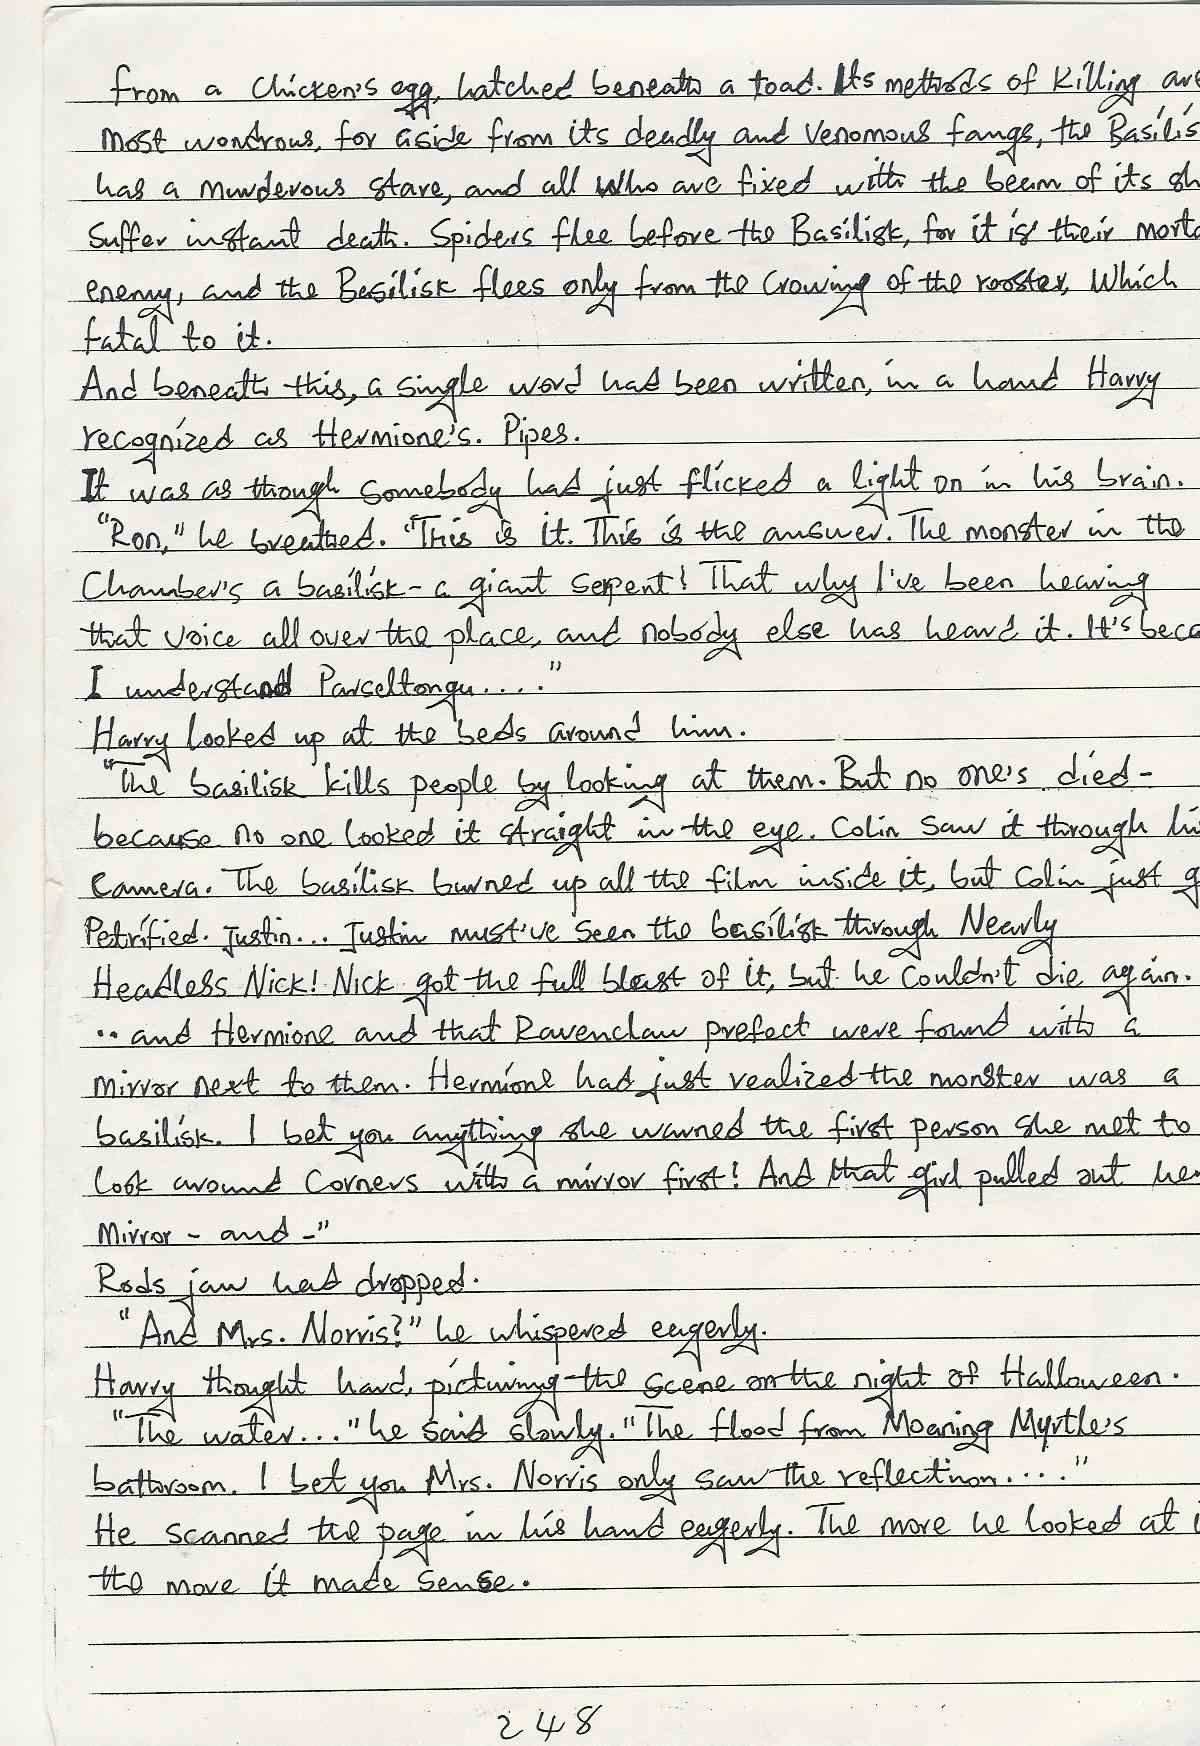 from a chicken's egg, hatched beneath a toad. Its methods of Killing are
most wondrous, for aside from its deadly and venomous fangs, the Basilis
has a murderous stare, and all who are fixed with the beam of its sh
Suffer instant death. Spiders flee before the Basilisk, for it is their morta
enemy, and the Basilisk flees only from the Crowing of the rooster, Which
fatal to it.
And beneath this, a single word had been written, in a hand Harry
recognized as Hermione's. Pipes.
It was as though somebody had just flicked a light on in his brain.
"Ron," he breathed. "This is it. This is the answer. The monster in the
Chamber's a basilisk - a giant serpent! That why I've been hearing
that voice all over the place, and nobody else has heard it. It's beca
I understand Parseltongu...."
Harry looked up at the beds around him.
"The basilisk kills people by looking at them. But no one's died -
because no one looked it straight in the eye. Colin saw it through his
Camera. The basilisk burned up all the film inside it, but Colin just g
Petrified. Justin... Justin must've seen the basilisk through Nearly
Headless Nick! Nick got the full blast of it, but he couldn't die again.
.. and Hermione and that Ravenclaw prefect were found with a
mirror next to them. Hermione had just realized the monster was a
basilisk. I bet you anything she warned the first person she met to
look around Corners with a mirror first! And that girl pulled out he
mirror - and -"
Rods jaw had dropped.
"And Mrs. Norris?" he whispered eagerly.
Harry thought hard, picturing the scene on the night of Halloween.
"The water..." he said slowly. "The flood from Moaning Myrtle's
bathroom. I bet you Mrs. Norris only saw the reflection...."
He scanned the page in his hand eagerly. The more he looked at i
the more it made sense.
248